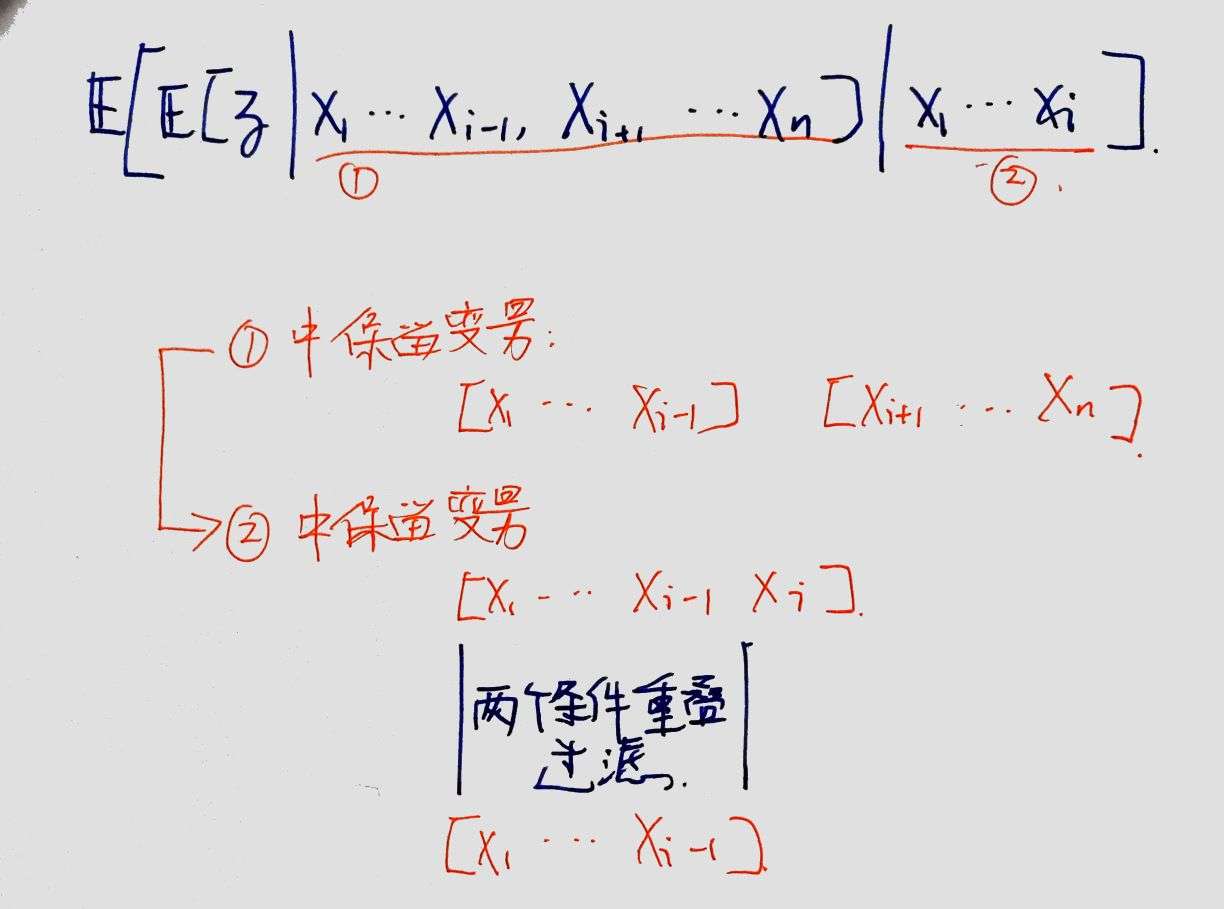 𝔼[𝔼[Z|X₁ ⋯ Xᵢ₋₁, Xᵢ₊₁ ⋯ Xₙ]|X₁ ⋯ Xᵢ].
① ②.
① 中保留变量:
[X₁ ⋯ Xᵢ₋₁] [Xᵢ₊₁ ⋯ Xₙ].
② 中保留变量
[X₁ ⋯ Xᵢ₋₁ Xᵢ].
两个条件重叠
过滤.
[X₁ ⋯ Xᵢ₋₁].